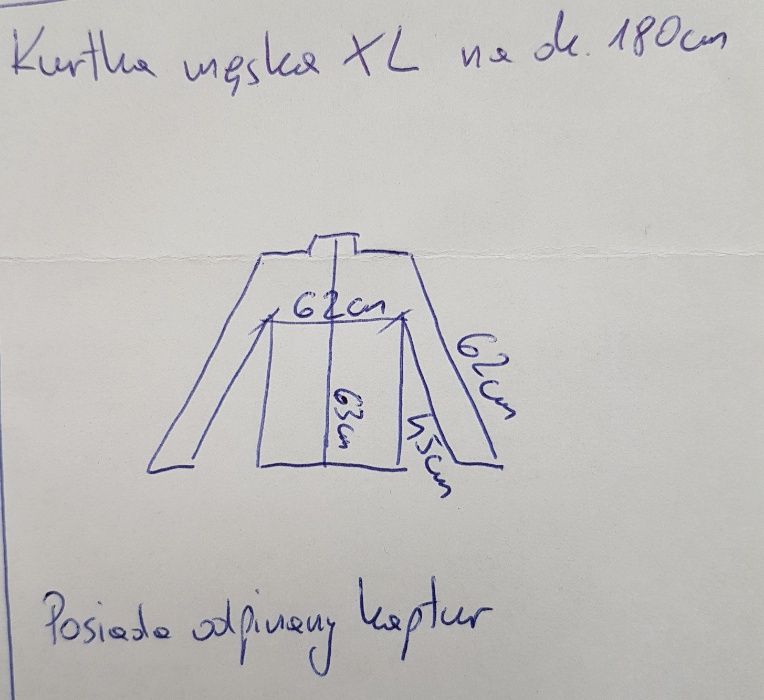 Kurtka męska XL na ok. 180cm
62cm
62cm
63cm
45cm
Posiada odpinany kaptur